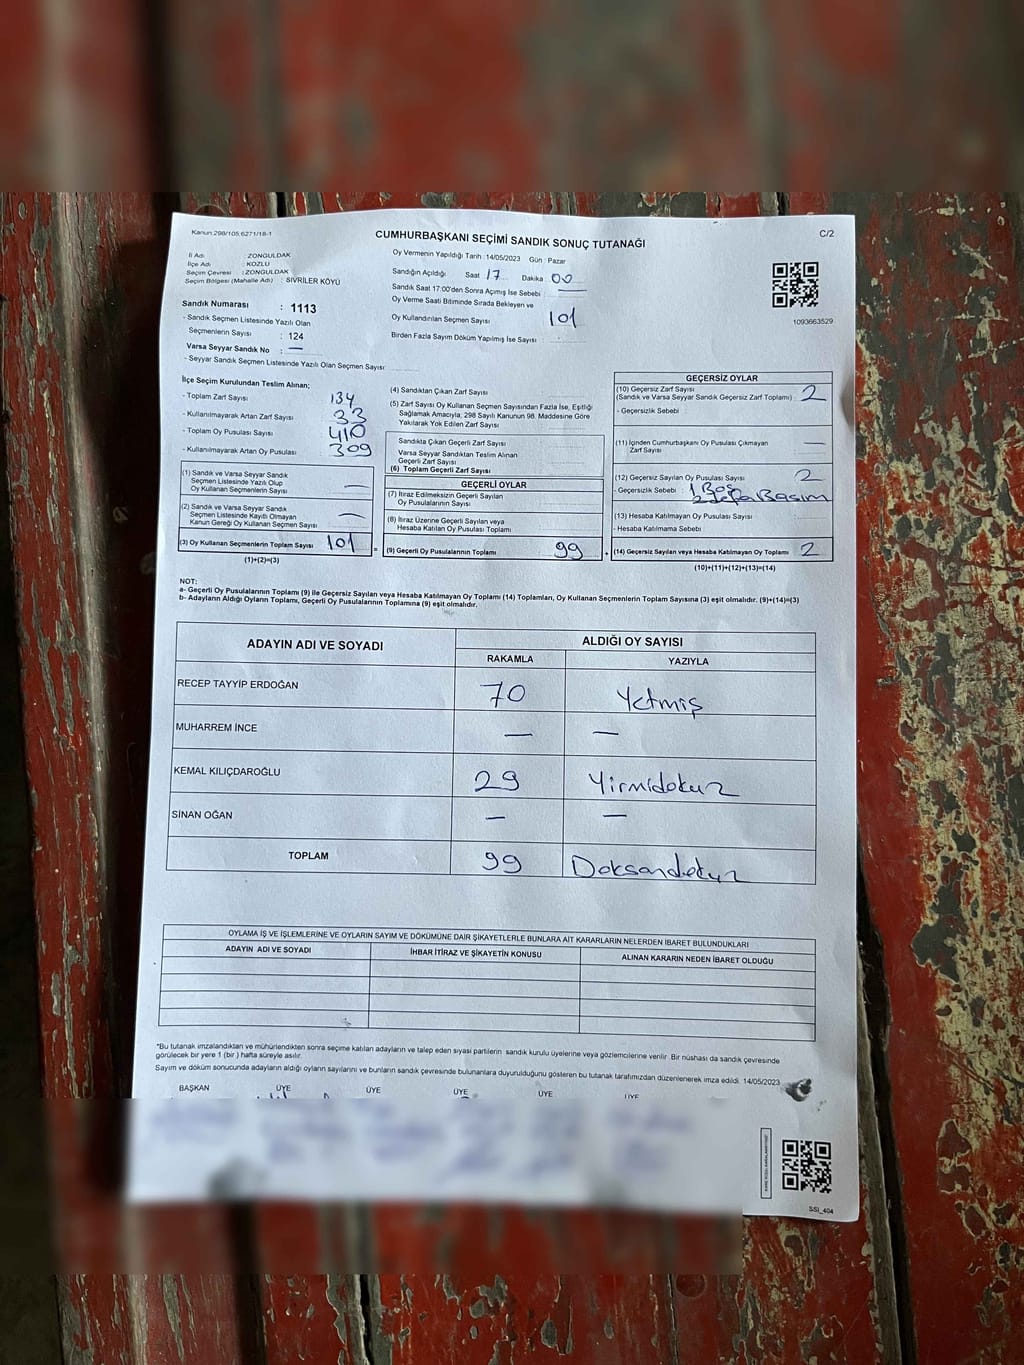 Kanun:298/105;6271/18-1
CUMHURBAŞKANI SEÇİMİ SANDIK SONUÇ TUTANAĞI
C/2
İl Adı : ZONGULDAK
İlçe Adı : KOZLU
Seçim Çevresi : ZONGULDAK
Seçim Bölgesi (Mahalle Adı) : SİVRİLER KÖYÜ
Oy Vermenin Yapıldığı Tarih :14/05/2023 Gün : Pazar
Sandığın Açıldığı Saat 17 Dakika 00
Sandık Saat 17:00'den Sonra Açımış İse Sebebi
Oy Verme Saati Bitiminde Sırada Bekleyen ve
Oy Kullandırılan Seçmen Sayısı 101
Birden Fazla Sayım Döküm Yapılmış İse Sayısı
1093663529
Sandık Numarası : 1113
- Sandık Seçmen Listesinde Yazılı Olan
Seçmenlerin Sayısı : 124
Varsa Seyyar Sandık No : —
- Seyyar Sandık Seçmen Listesinde Yazılı Olan Seçmen Sayısı:
İlçe Seçim Kurulundan Teslim Alınan;
- Toplam Zarf Sayısı 134
- Kullanılmayarak Artan Zarf Sayısı 33
- Toplam Oy Pusulası Sayısı 410
- Kullanılmayarak Artan Oy Pusulası 309
(1) Sandık ve Varsa Seyyar Sandık
Seçmen Listesinde Yazılı Olup
Oy Kullanan Seçmenlerin Sayısı —
(2) Sandık ve Varsa Seyyar Sandık
Seçmen Listesinde Kayıtlı Olmayan
Kanun Gereği Oy Kullanan Seçmen Sayısı —
(3) Oy Kullanan Seçmenlerin Toplam Sayısı 101
(1)+(2)=(3)
(4) Sandıktan Çıkan Zarf Sayısı
(5) Zarf Sayısı Oy Kullanan Seçmen Sayısından Fazla İse, Eşitliği
Sağlamak Amacıyla, 298 Sayılı Kanunun 98. Maddesine Göre
Yakılarak Yok Edilen Zarf Sayısı
Sandıkta Çıkan Geçerli Zarf Sayısı
Varsa Seyyar Sandıktan Teslim Alınan
Geçerli Zarf Sayısı
(6) Toplam Geçerli Zarf Sayısı
GEÇERLİ OYLAR
(7) İtiraz Edilmeksizin Geçerli Sayılan
Oy Pusulalarının Sayısı
(8) İtiraz Üzerine Geçerli Sayılan veya
Hesaba Katılan Oy Pusulası Toplamı
= (9) Geçerli Oy Pusulalarının Toplamı 99
GEÇERSİZ OYLAR
(10) Geçersiz Zarf Sayısı
(Sandık ve Varsa Seyyar Sandık Geçersiz Zarf Toplamı) 2
- Geçersizlik Sebebi :
(11) İçinden Cumhurbaşkanı Oy Pusulası Çıkmayan
Zarf Sayısı —
(12) Geçersiz Sayılan Oy Pusulası Sayısı 2
- Geçersizlik Sebebi : 1 Boş
2 defa Basım
(13) Hesaba Katılmayan Oy Pusulası Sayısı
- Hesaba Katılmama Sebebi
+ (14) Geçersiz Sayılan veya Hesaba Katılmayan Oy Toplamı 2
(10)+(11)+(12)+(13)=(14)
NOT:
a- Geçerli Oy Pusulalarının Toplamı (9) ile Geçersiz Sayılan veya Hesaba Katılmayan Oy Toplamı (14) Toplamları, Oy Kullanan Seçmenlerin Toplam Sayısına (3) eşit olmalıdır. (9)+(14)=(3)
b- Adayların Aldığı Oyların Toplamı, Geçerli Oy Pusulalarının Toplamına (9) eşit olmalıdır.
ADAYIN ADI VE SOYADI ALDIĞI OY SAYISI
RAKAMLA YAZIYLA
RECEP TAYYİP ERDOĞAN 70 Yetmiş
MUHARREM İNCE — —
KEMAL KILIÇDAROĞLU 29 Yirmidokuz
SİNAN OĞAN — —
TOPLAM 99 Doksandokuz
OYLAMA İŞ VE İŞLEMLERİNE VE OYLARIN SAYIM VE DÖKÜMÜNE DAİR ŞİKAYETLERLE BUNLARA AİT KARARLARIN NELERDEN İBARET BULUNDUKLARI
ADAYIN ADI VE SOYADI İHBAR İTİRAZ VE ŞİKAYETİN KONUSU ALINAN KARARIN NEDEN İBARET OLDUĞU
*Bu tutanak imzalandıktan ve mühürlendikten sonra seçime katılan adayların ve talep eden siyasi partilerin sandık kurulu üyelerine veya gözlemcilerine verilir. Bir nüshası da sandık çevresinde
görülecek bir yere 1 (bir ) hafta süreyle asılır.
Sayım ve döküm sonucunda adayların aldığı oyların sayılarını ve bunların sandık çevresinde bulunanlara duyurulduğunu gösteren bu tutanak tarafımızdan düzenlenerek imza edildi. 14/05/2023
BAŞKAN ÜYE ÜYE ÜYE ÜYE ÜYE
SSI_404